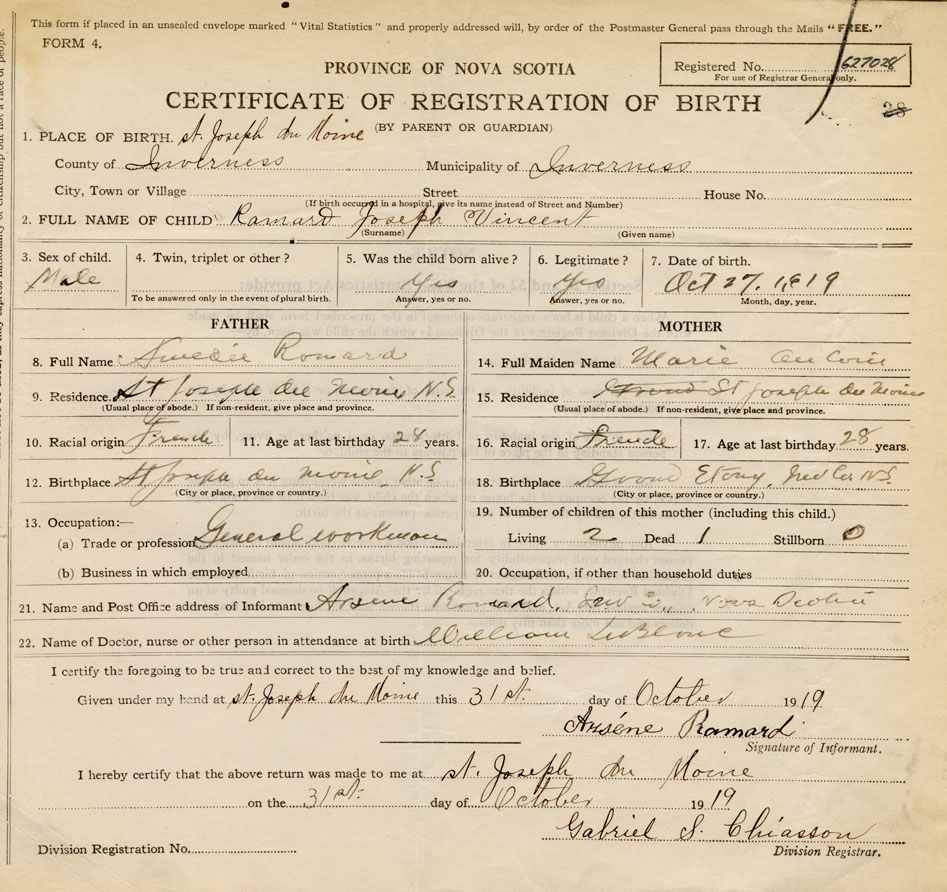 This form if placed in an unsealed envelope marked "Vital Statistics" and properly addressed will, by order of the Postmaster General pass through the Mails "FREE."
FORM 4.
Registered No. 627028
For use of Registrar General only.
PROVINCE OF NOVA SCOTIA
CERTIFICATE OF REGISTRATION OF BIRTH
28
(BY PARENT OR GUARDIAN)
1. PLACE OF BIRTH. St. Joseph du Moine
County of Inverness Municipality of Inverness
City, Town or Village Street House No.
(If birth occured in a hospital, give its name instead of Street and Number)
2. FULL NAME OF CHILD Ramard Joseph Vincent
(Surname) (Given name)
3. Sex of child. 4. Twin, triplet or other? 5. Was the child born alive? 6. Legitimate? 7. Date of birth.
Male Yes Yes Oct 27. 1919
To be answered only in the event of plural birth. Answer, yes or no. Answer, yes or no. Month, day, year.
FATHER MOTHER
8. Full Name Amedée Romard
14. Full Maiden Name Marie
9. Residence. St Joseph du Moine N.S.
(Usual place of abode.) If non-resident, give place and province.
15. Residence St Joseph du Moine
(Usual place of abode.) If non-resident, give place and province.
10. Racial origin French 11. Age at last birthday 28 years.
16. Racial origin French 17. Age at last birthday 28 years.
12. Birthplace. St Joseph du Moine N.S.
(City or place, province or country.)
18. Birthplace Grand Etang, Inv Co. N.S.
(City or place, province or country.)
13. Occupation:—
(a) Trade or profession General workman
(b) Business in which employed
19. Number of children of this mother (including this child.)
Living 2 Dead 1 Stillborn 0
20. Occupation, if other than household duties
21. Name and Post Office address of Informant Arsene Romard, Nova Scotia
22. Name of Doctor, nurse or other person in attendance at birth William LeBlanc
I certify the foregoing to be true and correct to the best of my knowledge and belief.
Given under my hand at St. Joseph du Moine this 31st. day of October 1919.
Arséne Ramard
Signature of Informant.
I hereby certify that the above return was made to me at St. Joseph du Moine
on the 31st. day of October 1919
Gabriel S. Chiasson
Division Registrar.
Division Registration No.